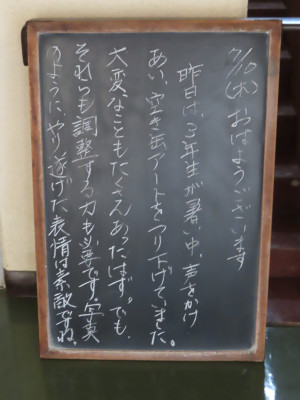 7/10(水) おはようございます
昨日は、3年生が暑い中、声をかけ
あい、空き缶アートをつり下げていました。
大変なこともたくさんあったはず。でも、
それらも調整する力も必要です。写真
のように、やり遂げた表情は素敵ですね。